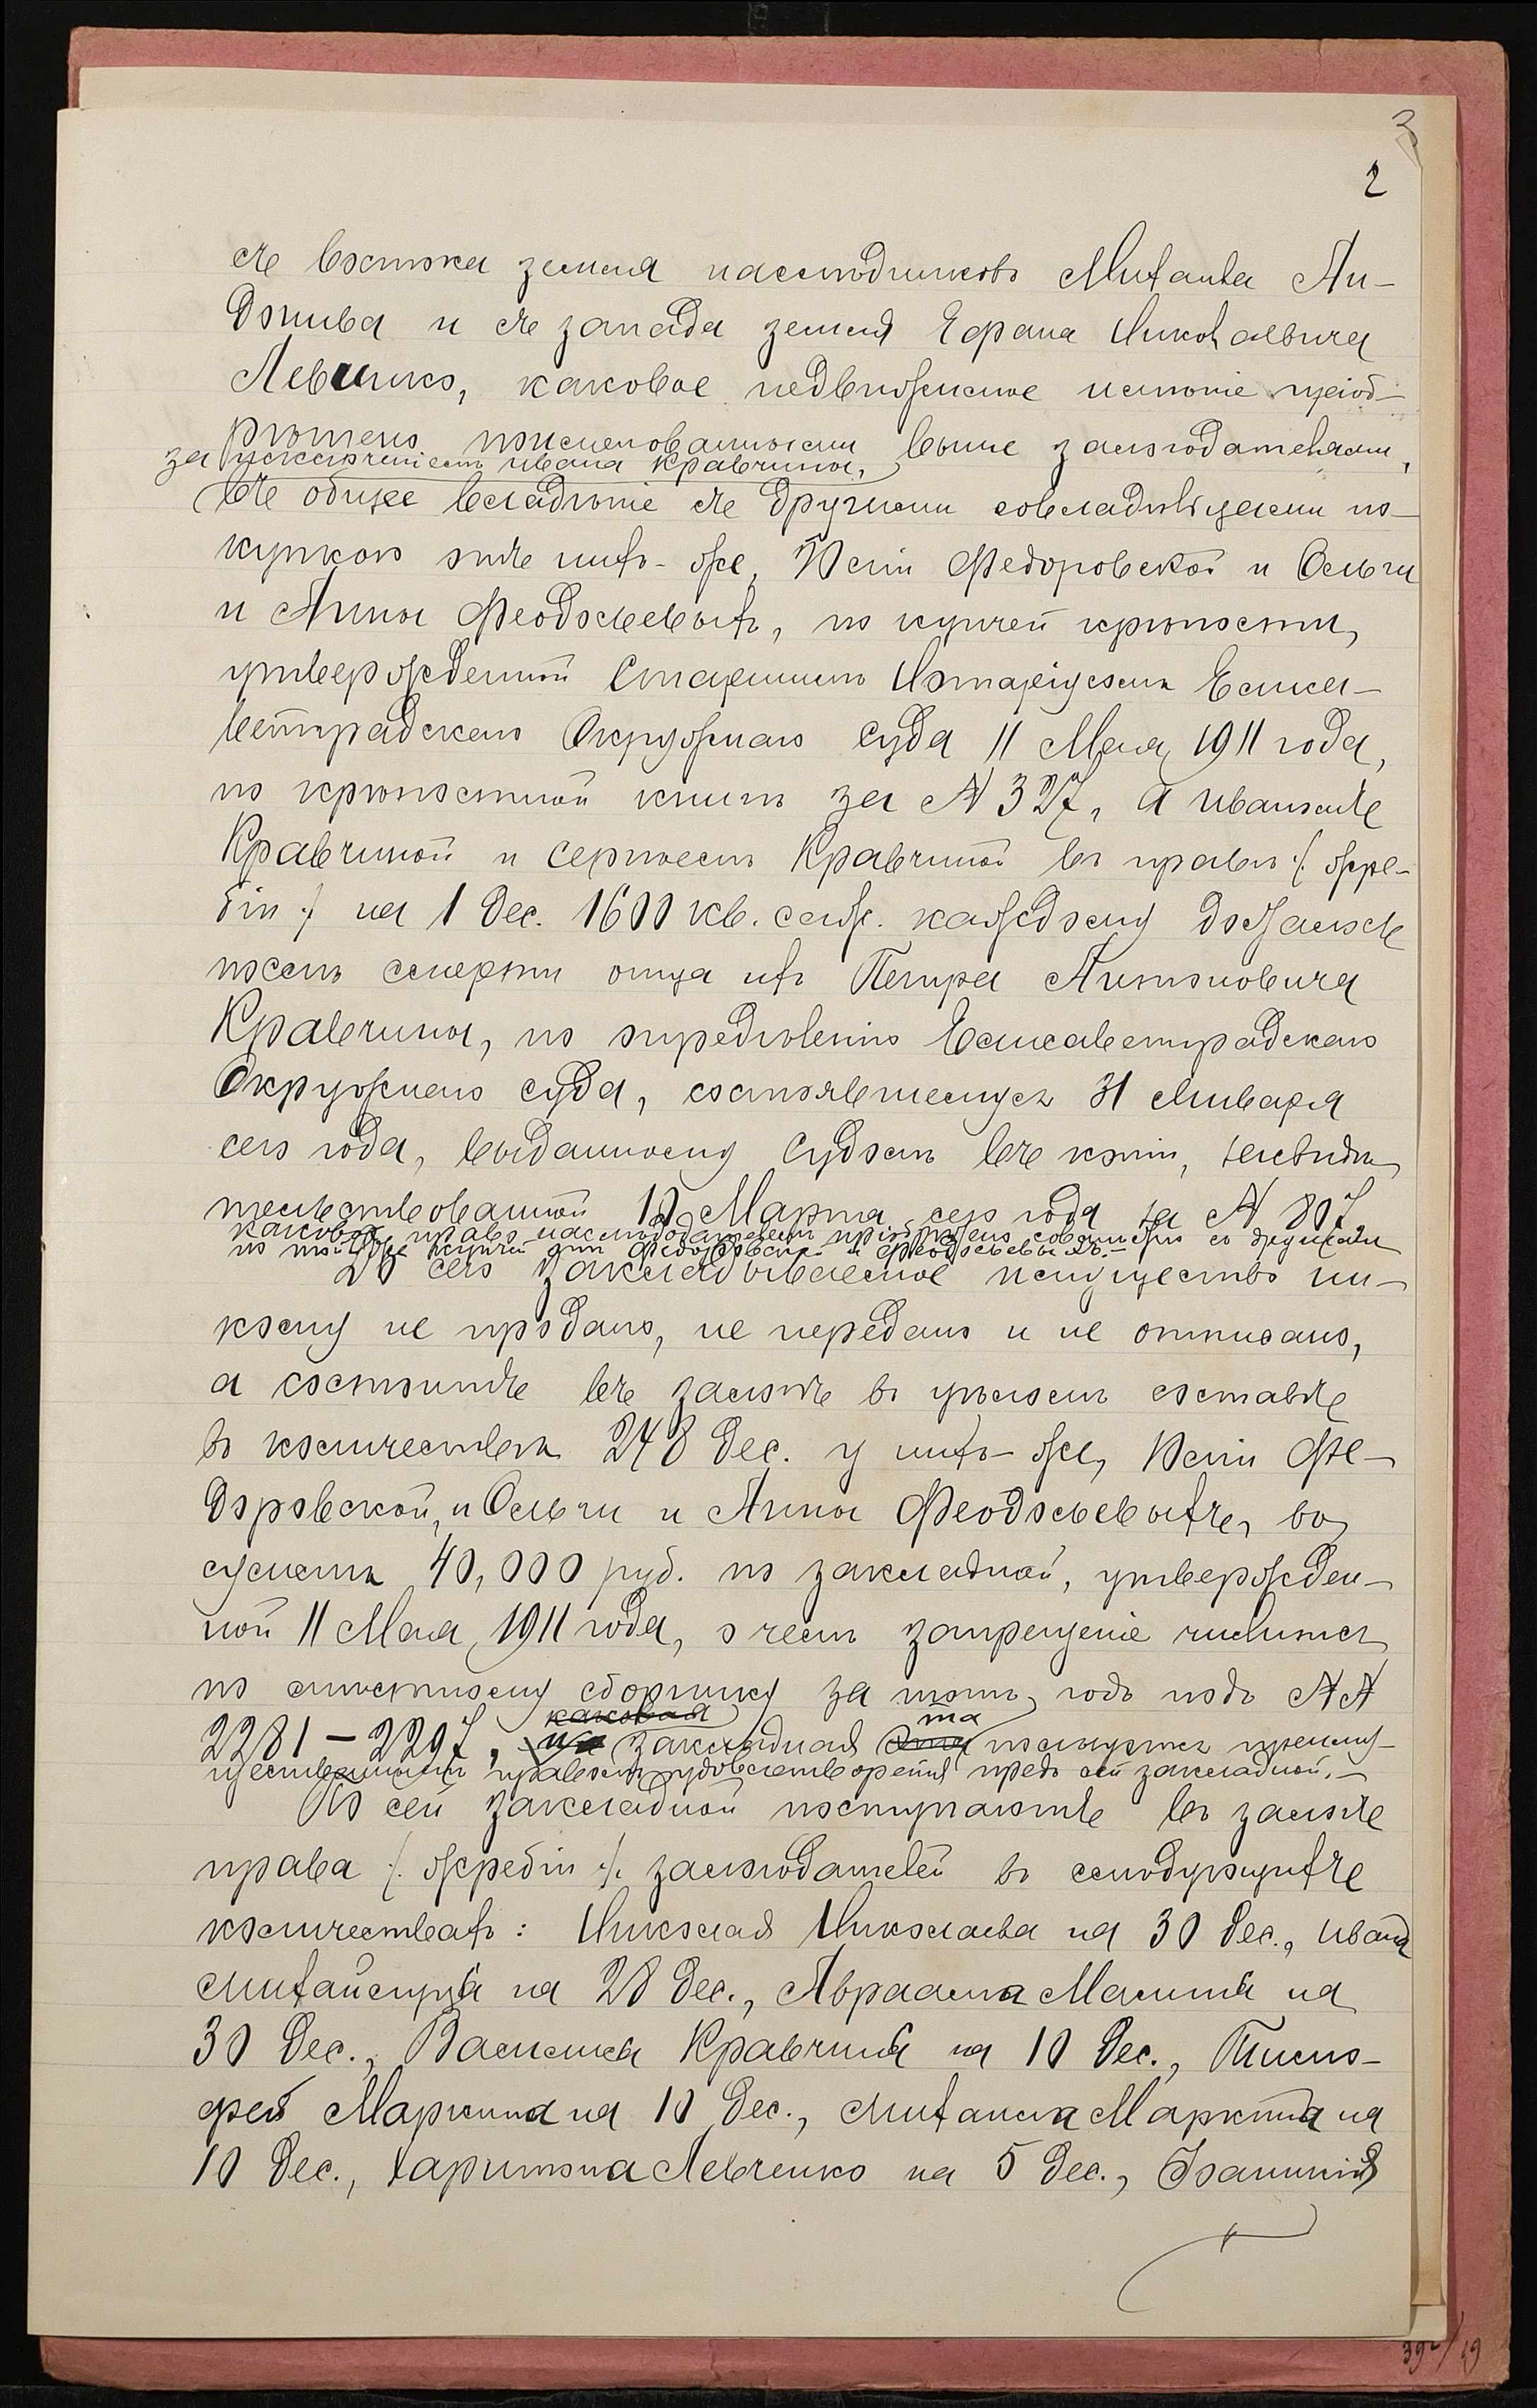 3
2
съ востока земля наслѣдниковъ Михаила Ан-
донива и съ запада земля Ефрана Николаевича
Левшенко, каковое недвижимое имѣніе пріоб-
рѣтено поименованными выше залогодателями,
за исключеніемъ Ивана Кравчины,
въ общее владѣніе съ другими совладѣльцами по-
купкою отъ нихъ-же, Юліи Федоровской и Ольги
и Анны Феодосьевыхъ, по купчей крѣпости,
утвержденной Старшимъ Нотаріусомъ Елиса-
ветградскаго Окружнаго Суда 11 Мая 1911 года,
по крѣпостной книгѣ за № 327, а Иваномъ
Кравчиной и Сергѣемъ Кравчиной въ правѣ /. жре-
біи ./ на 1 дес. 1600 кв. саж. каждому досталось
послѣ смерти отца ихъ Петра Антоновича
Кравчины, по опредѣленію Елисаветградскаго
Окружнаго Суда, состоявшемуся 31 Января
сего года, выданному Судомъ въ копіи, засвидѣ-
тельствованной 10 Марта сего года за № 807,
каковое право наслѣдодателемъ пріобрѣтено совмѣстно съ другими
по той же купчей отъ Федоровской и Феодосьевыхъ.—
До сего закладываемое имущество ни-
кому не продано, не передано и не отписано,
а состоитъ въ залогѣ въ цѣломъ составѣ
въ количествѣ 248 дес. у нихъ-же, Юліи Фе-
доровской, и Ольги и Анны Феодосьевыхъ, во
суммѣ 40,000 руб. по закладной, утвержден-
ной 11 Мая 1911 года, о чемъ запрещеніе числится
по мѣстному сборнику за тотъ годъ подъ №№
каковая та
2281—2297, закладная эта пользуется преиму-
щественнымъ правомъ удовлетворенія предъ сей закладной.—
По сей закладной поступаютъ въ залогъ
права /. жребіи ./ залогодателей въ слѣдующихъ
количествахъ: Николая Николаева на 30 дес., Ивана
Михайлуца на 20 дес., Авраама Малина на
30 дес., Василія Кравчины на 10 дес., Тимо-
фея Маркина на 10 дес., Михаила Маркина на
10 дес., Харитона Левченко на 5 дес., Іоанникія
39 / 19